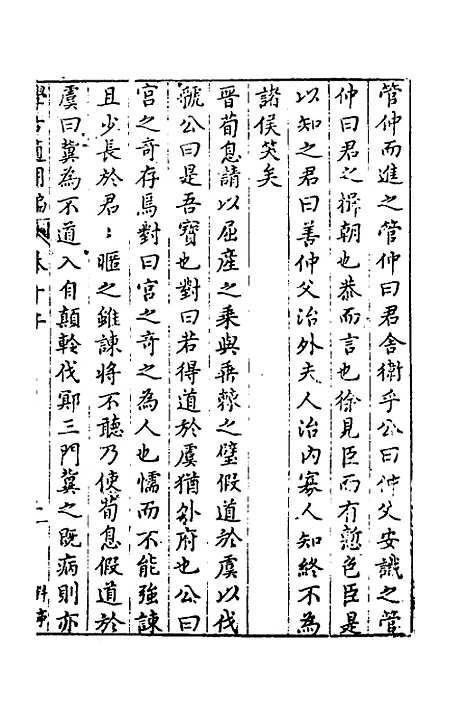 管仲而進之管仲曰君舍衛乎公曰仲父安識之管
仲曰君之揖朝也恭而言也徐見臣而有慙色臣是
以知之君曰善仲父治外夫人治內寡人知終不為
諸侯笑矣
晋荀息請以屈產之乘與垂棘之璧假道於虞以伐
虢公曰是吾寶也對曰若得道於虞猶外府也公曰
宮之奇存焉對曰宮之奇之為人也懦而不能強諫
且少長於君〻暱之雖諫將不聽乃使荀息假道於
虞曰冀為不道入自顛軨伐鄍三門冀之既病則亦
學古適用編 卷十